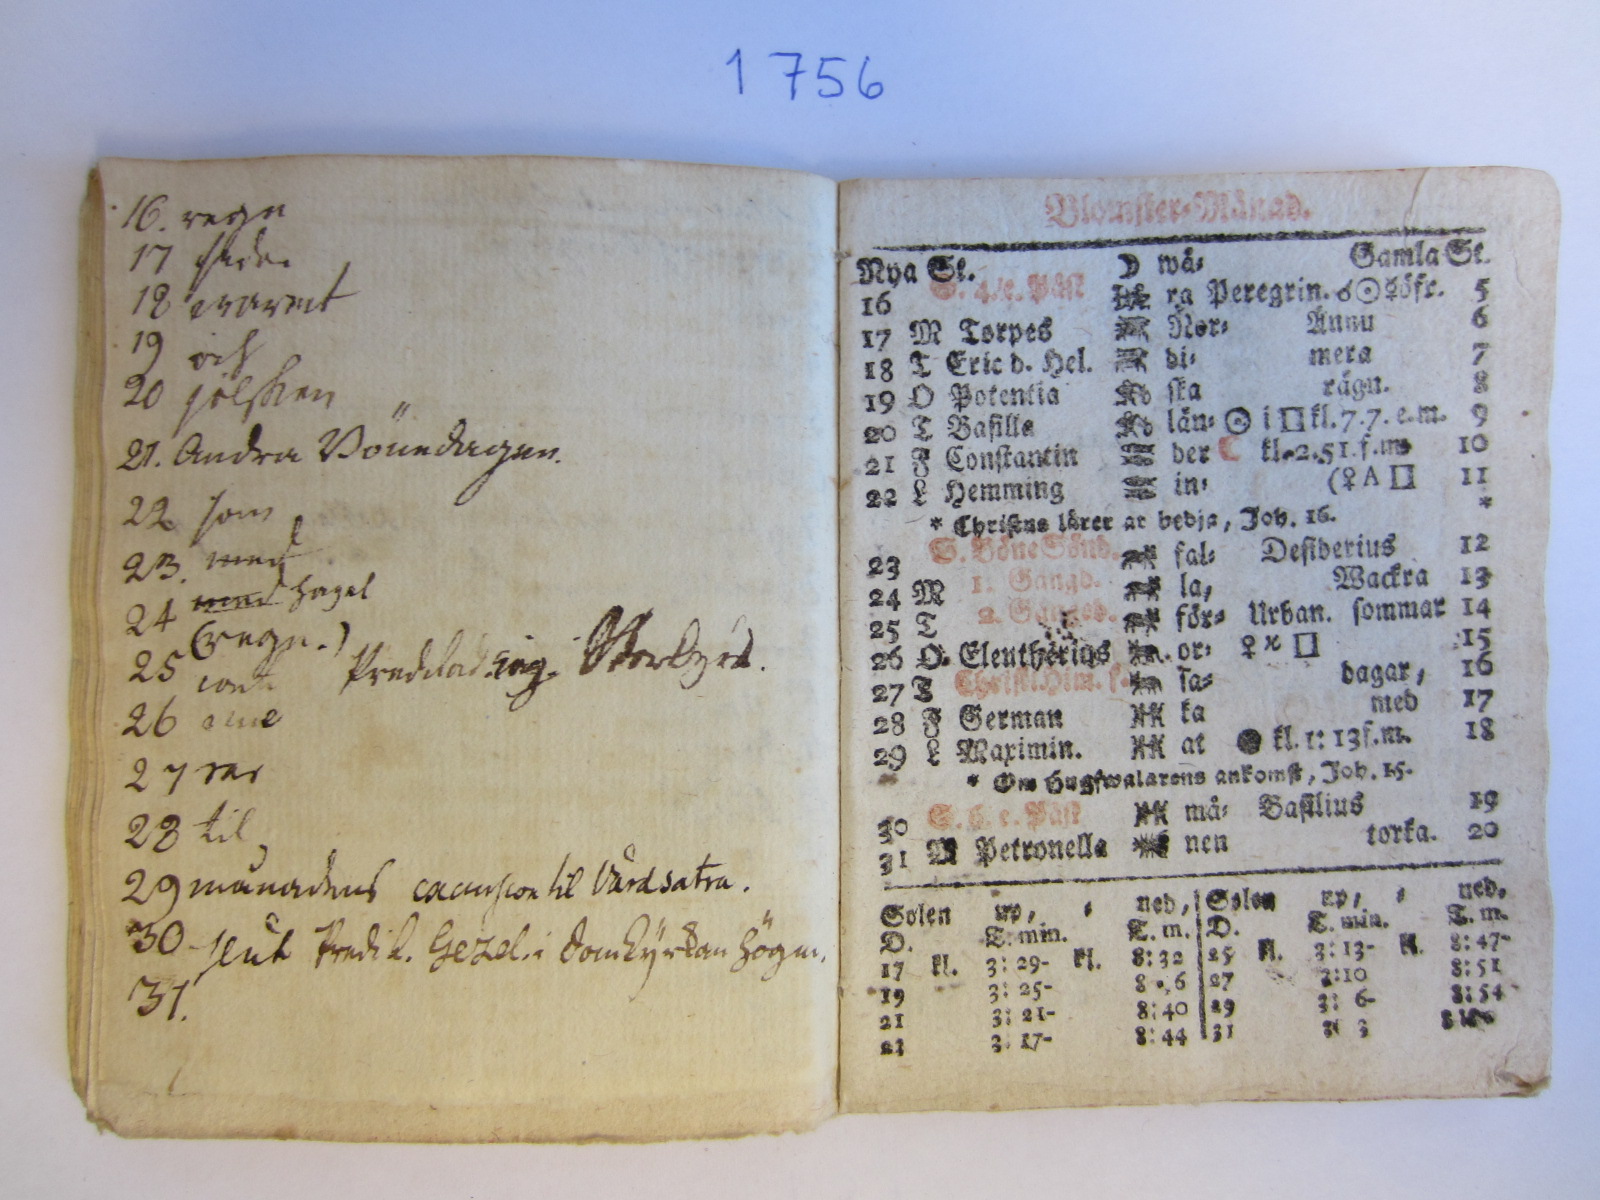 1756
16. regn
17
18 warmt
19 och
20 solsken
21. Andra Bönedagen.
22 som
23. med
24 hagel
(regn.)
25
26
27
28 til
29 månadens excursion til Vårdsätra.
30 slut Predik. Gezel. i Domkyrkan högm.
31.
Blomster-Månad.
Nya St. ☽ wå- Gamla St.
16 S. 4. e. Påsk ra Peregrin. ☌☉☿öfr. 5
17 M Torpes Nor- Ännu 6
18 T Eric d. Hel. di- mera 7
19 O Potentia ska rägn. 8
20 T Basilla län- ☉ i ♊ kl. 7.7. e.m. 9
21 F Constantin der ☾ kl. 2.51. f.m. 10
22 L Hemming in- (♀ A ♊ 11
* Christus lärer at bedja, Joh. 16. *
23 S. Böne Sönd. fal- Desiderius 12
24 M 1. Gångd. la, Wackra 13
25 T 2. Gånged. för- Urban. sommar 14
26 O. Eleutherius or- ♀ ♊ 15
27 T Christi Him. f. sa- dagar, 16
28 F German ka med 17
29 L Maximin. at ● kl. 1: 13 f.m. 18
* Om Hugswalarens ankomst, Joh. 15.
30 S. 6. e. Påsk må- Basilius 19
31 M Petronella nen torka. 20
Solen up, ned, Solen up, ned,
D. T. min. T. m. D. T. min. T. m.
17 kl. 3: 29- kl. 8: 32 25 kl. 3: 13- kl. 8: 47-
19 3: 25- 27 3: 10 8: 51
21 3: 21- 8: 40 29 3: 6- 8: 54
23 3: 17- 8: 44 31 3: 3